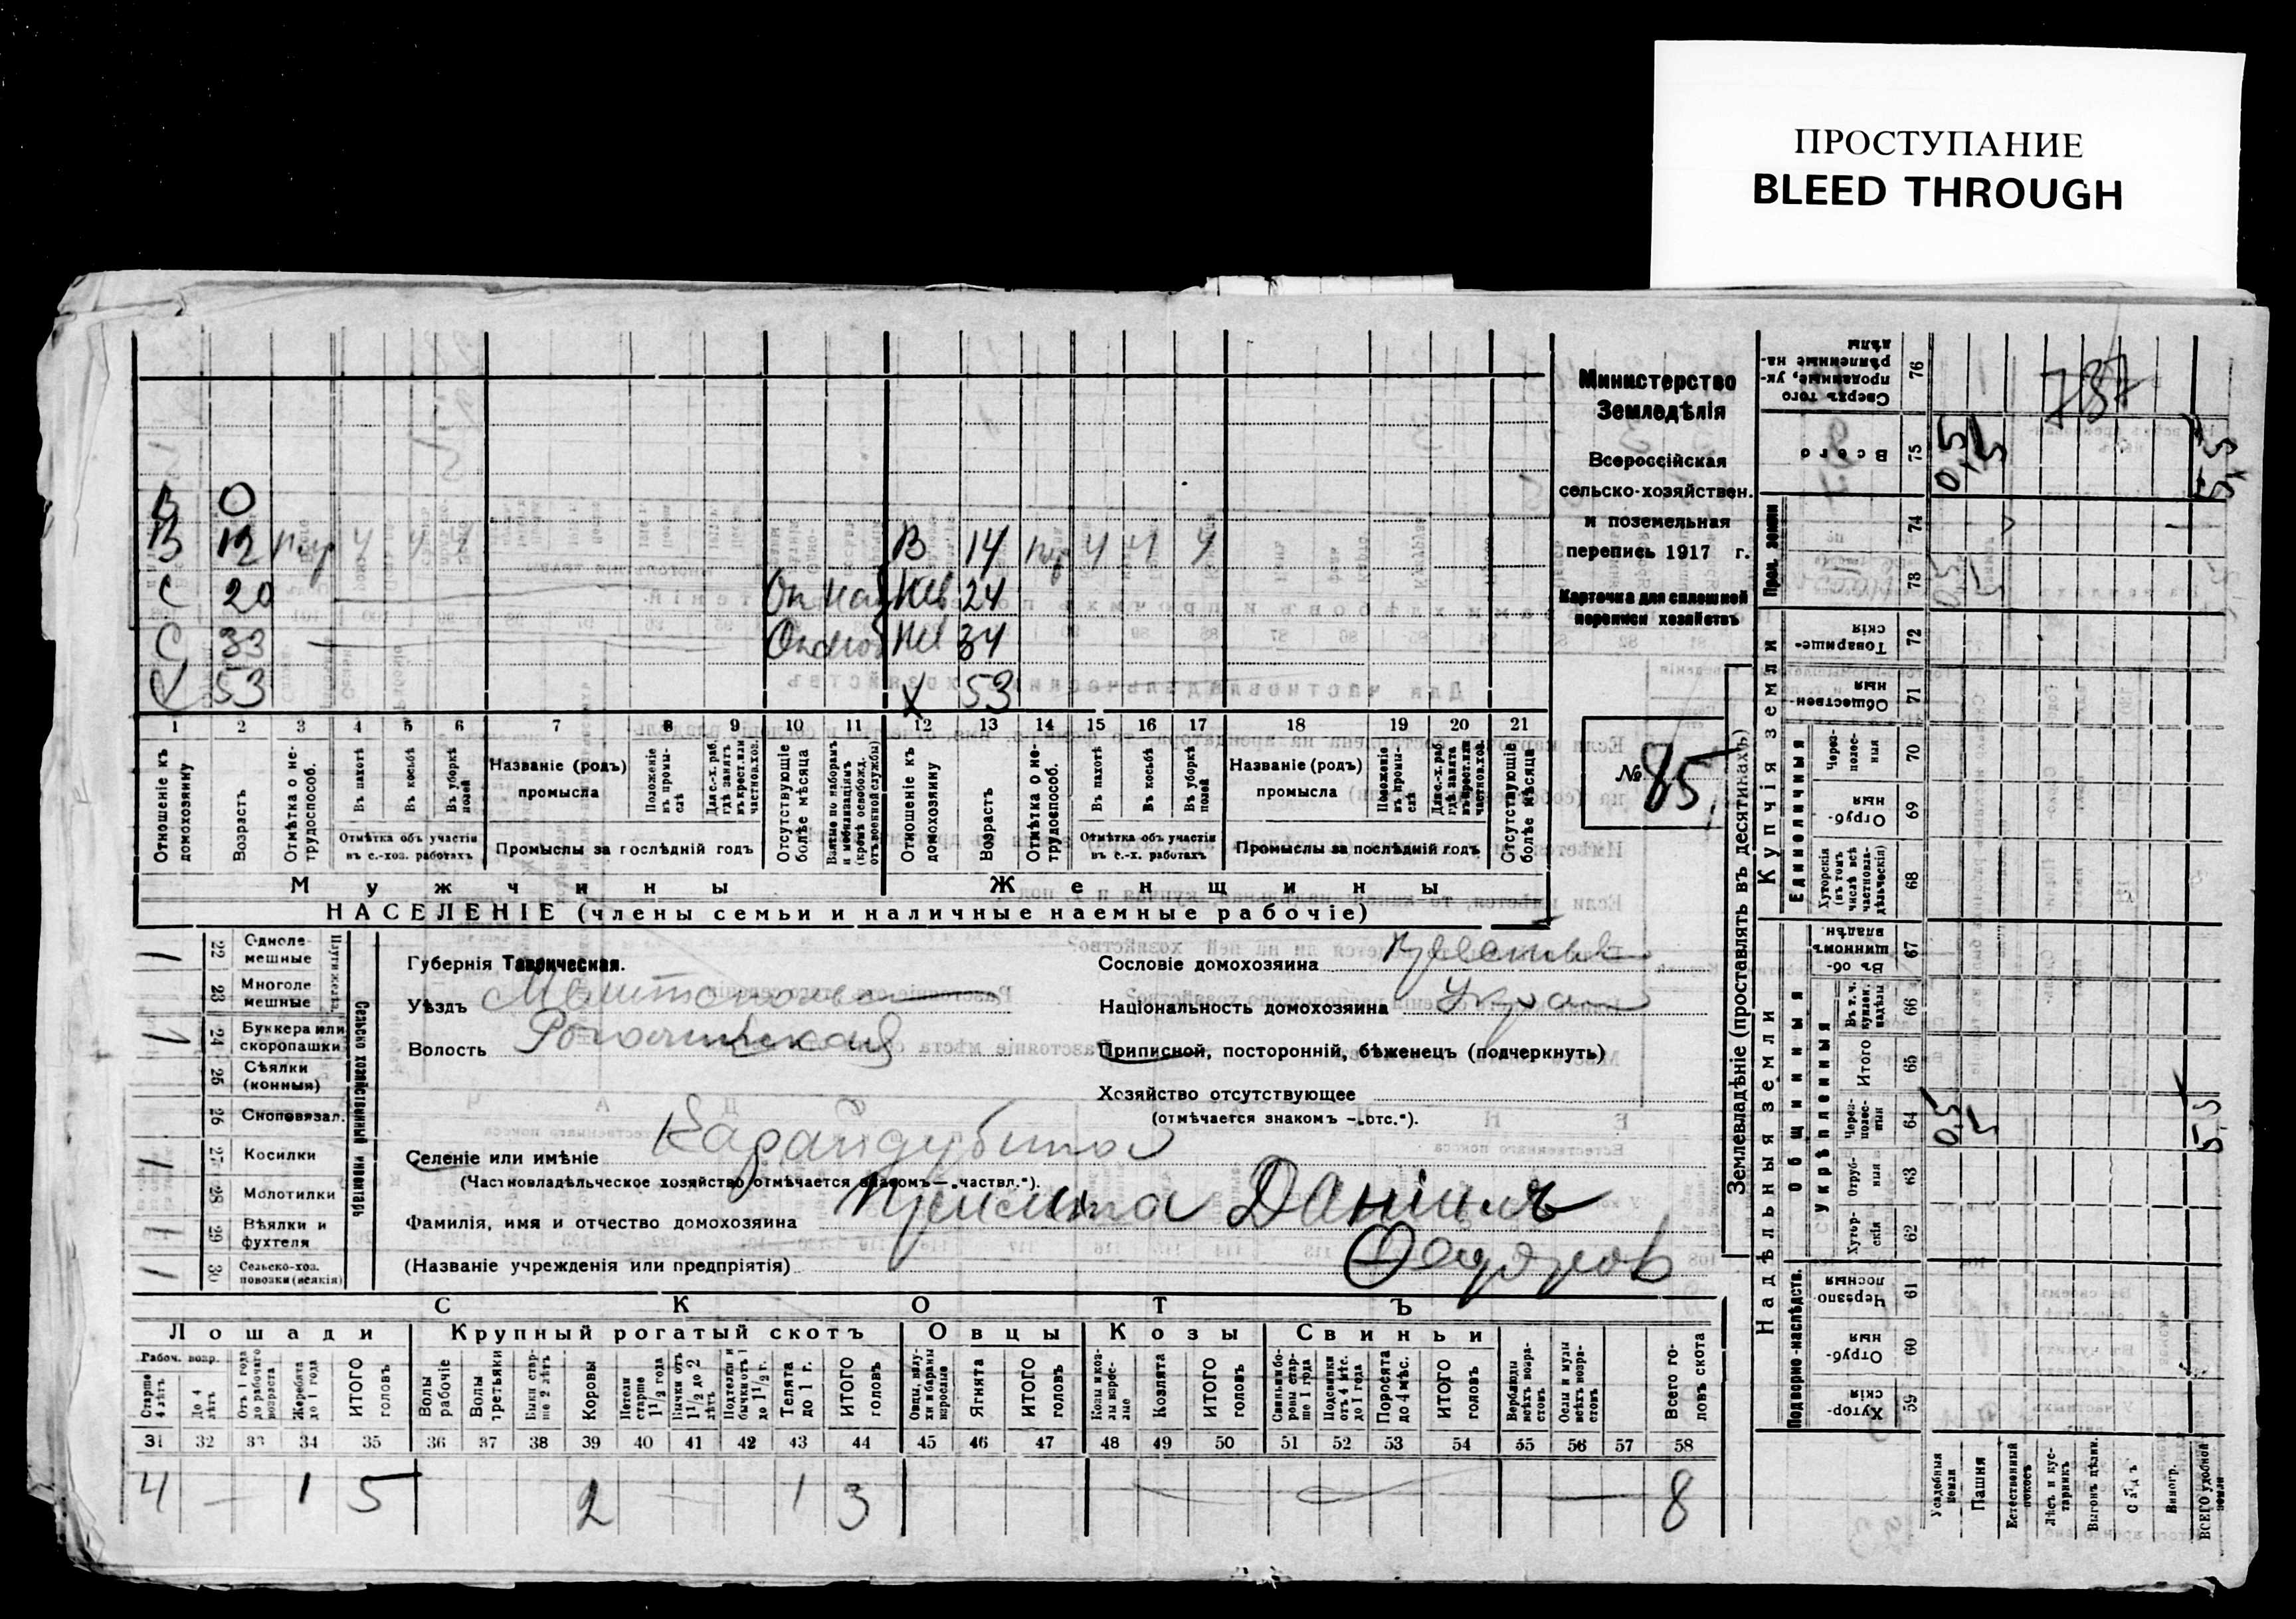 ПРОСТУПАНИЕ
BLEED THROUGH
В 0
В 12 4 4 В 14 4 4 4
С 20 24
С 33 34
Х 53 Х 53
1 2 3 4 5 6 7 8 9 10 11 12 13 14 15 16 17 18 19 20 21
Отношеніе къ домохозяину
Возрастъ
Отмѣтка о не-трудоспособ.
Въ пахотѣ
Въ косьбѣ
Въ уборкѣ полей
Отмѣтка объ участіи въ с.-хоз. работахъ
Названіе (родъ) промысла
Положеніе въ промы-слѣ
Для с.-х. раб. гдѣ занятъ въ крест. или частнов. хоз.
Промыслы за послѣдній годъ
Отсутствующіе болѣе мѣсяца
Взятые по наборамъ и мобилизаціямъ (кромѣ освобожд. отъ военной службы)
Отношеніе къ домохозяину
Возрастъ
Отмѣтка о не-трудоспособ.
Въ пахотѣ
Въ косьбѣ
Въ уборкѣ полей
Отмѣтка объ участіи въ с.-х. работахъ
Названіе (родъ) промысла
Положеніе въ промы-слѣ
Для с.-х. раб. гдѣ занята въ крест. или частнов. хоз.
Промыслы за послѣдній годъ
Отсутствующіе болѣе мѣсяца
Мужчины
Женщины
НАСЕЛЕНІЕ (члены семьи и наличные наемные рабочіе)
Министерство
Земледѣлія
Всероссійская
сельско-хозяйствен.
и поземельная
перепись 1917 г.
Карточка для сплошной
переписи хозяйствъ
№ 85
1 22 Однолемешные
23 Многолемешные
1 24 Буккера или скоропашки
25 Сѣялки (конныя)
26 Сноповязал.
1 27 Косилки
28 Молотилки
1 29 Вѣялки и фухтеля
1 30 Сельско-хоз. повозки (всякія)
Сельско хозяйственный инвентарь
Губернія Таврическая.
Уѣздъ Мелитополь
Волость Рогачикская
Селеніе или имѣніе Карайдубина
(Частновладѣльческое хозяйство отмѣчается знакомъ—„частвл.“).
Фамилія, имя и отчество домохозяина Даніилъ
(Названіе учрежденія или предпріятія) Федоров
Сословіе домохозяина
Національность домохозяина Украин
Приписной, посторонній, бѣженецъ (подчеркнуть)
Хозяйство отсутствующее
(отмѣчается знакомъ —„отс.“).
СКОТЪ
Лошади
Крупный рогатый скотъ
Овцы
Козы
Свиньи
Рабоч. возр.
Старше 4 лѣтъ
До 4 лѣтъ
Отъ 1 года до рабочаго возраста
Жеребята до 1 года
ИТОГО головъ
Волы рабочіе
Волы третьяки
Быки старше 2 лѣтъ
Коровы
Нетели старше 1 1/2 года
Бычки отъ 1 1/2 до 2 лѣтъ
Подтелки и бычки отъ 1 до 1 1/2 г.
Телята до 1 г.
ИТОГО головъ
Овцы, валухи и бараны взрослые
Ягнята
ИТОГО головъ
Козы и козлы взрослые
Козлята
ИТОГО головъ
Свиньи и боровы старше 1 года
Подсвинки отъ 4 мѣс. до 1 года
Поросята до 4 мѣс.
ИТОГО головъ
Верблюды всѣхъ возрастовъ
Ослы и мулы всѣхъ возрастовъ
Всего головъ скота
31 32 33 34 35 36 37 38 39 40 41 42 43 44 45 46 47 48 49 50 51 52 53 54 55 56 57 58
4 — 1 5 2 — 1 3 — — — 8
Землевладѣніе (проставлять въ десятинахъ)
Надѣльныя земли
Купчія земли
Подворно-наслѣдств.
Общинныя
Укрѣпленныя
Единоличныя
Пром. земли
76 Сверхъ того проданные, укрѣпленные надѣлы 737
75 Всего 0,5 5 5,5
74
73 0,5 5
72 Товарищескія
71 Общественныя
70 Черезполосныя
69 Отрубныя
68 Хуторскія (въ томъ числѣ всѣ частновладѣльческія)
67 Въ общинномъ владѣн.
66 Въ т. ч. куплен. надѣлы
65 Итого
64 Черезполосныя 0,5 5 5,5
63 Отрубныя
62 Хуторскія
61 Черезполосныя
60 Отрубныя
59 Хуторскія
Усадебныя земли
Пашня
Естественный покосъ
Лѣсъ и кустарникъ
Выгонъ дѣлим.
Садъ
Виногр.
ВСЕГО удобной земли